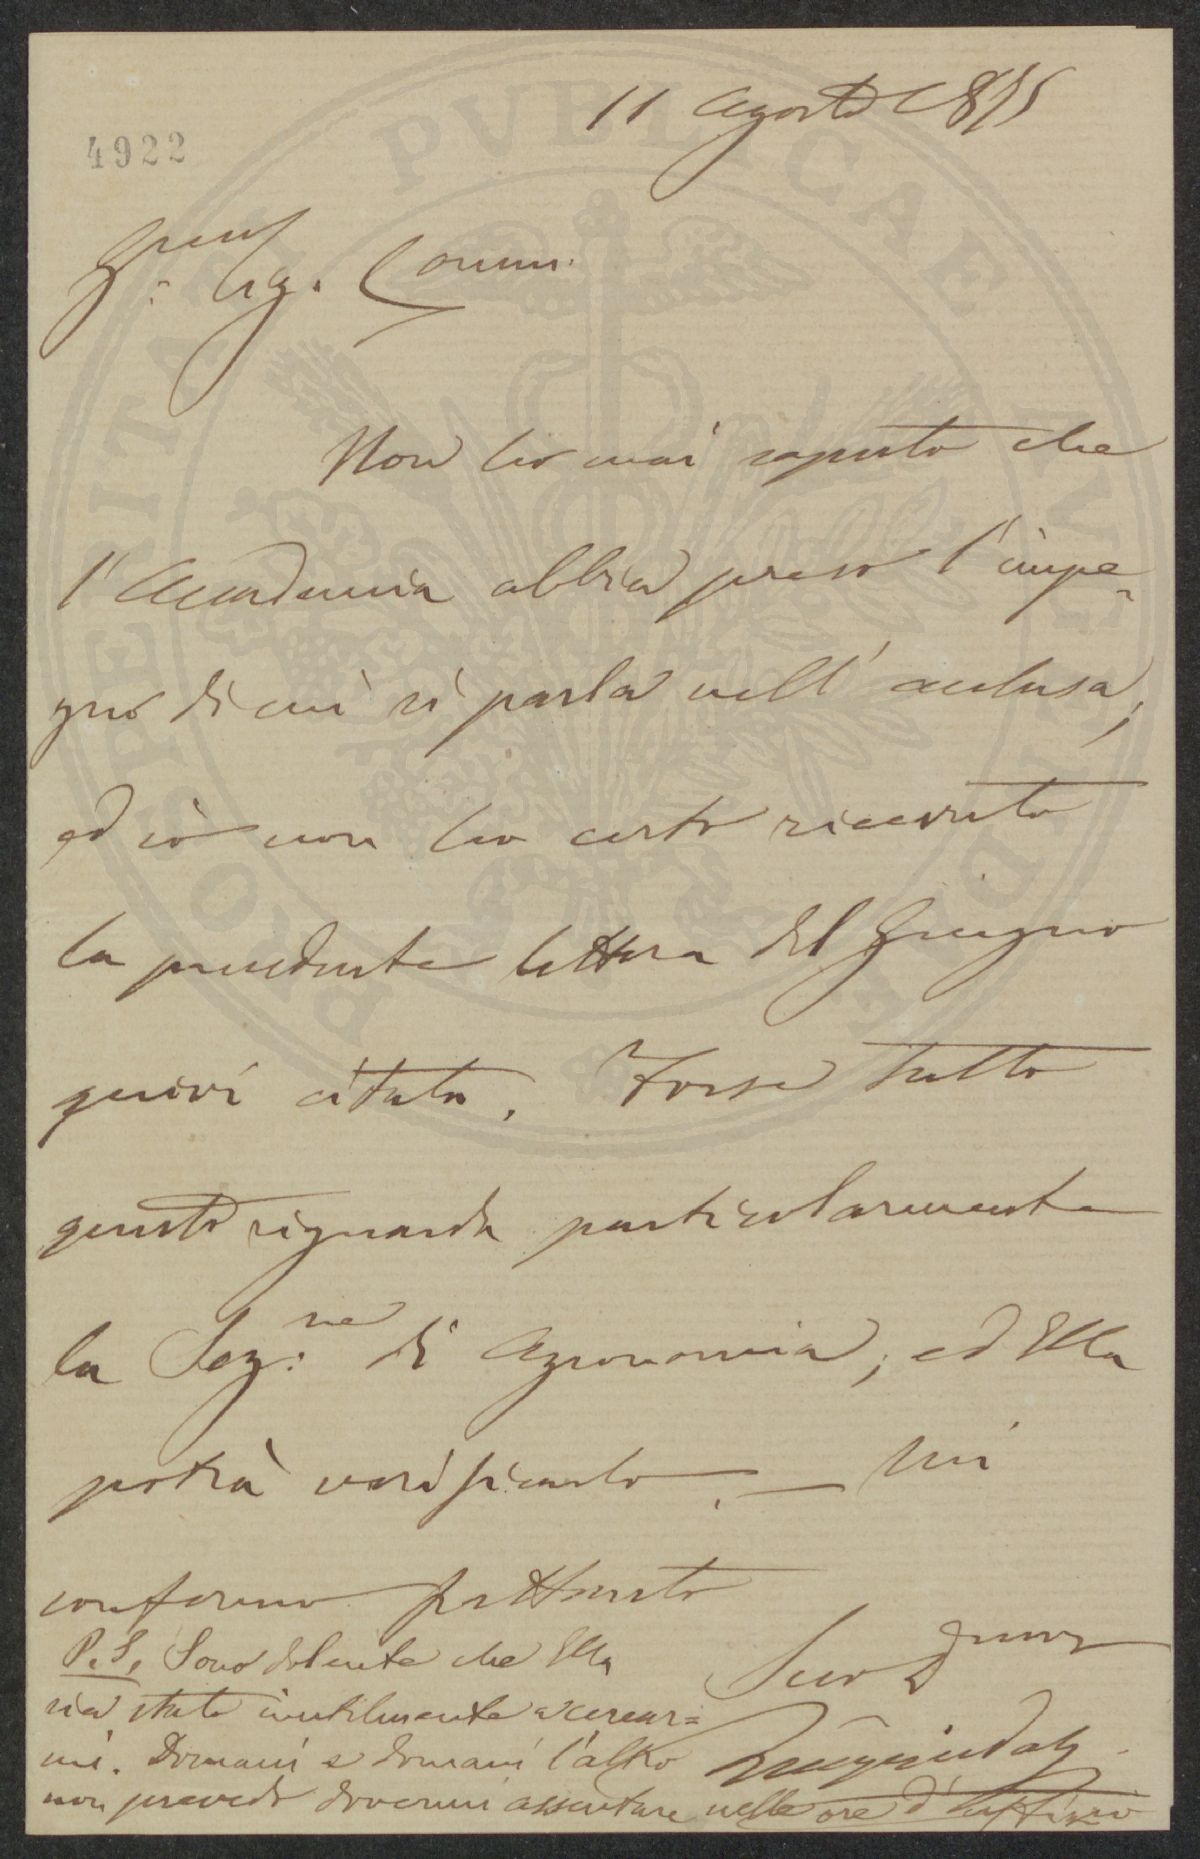 11 Agosto 1875
4922
Sig. Comm.
Non ho mai saputo che
l'Accademia abbia preso l'impe-
gno di cui si parla nell'acclusa,
ed io non ho certo ricevuto
la precedente lettera del Giugno
quivi citata. Forse tutto
questo riguarda particolarmente
la Sez:ne di Agronomia, ed Ella
potrà verificarlo. — Mi
confermo frattanto
Suo Dmo
P.S. Sono dolente che Ella
sia stato inutilmente a cercar=
mi. Domani e domani l'altro
non prevedo dovermi assentare nelle ore d'Uffizio
PROSPERITATI PVBLICAE AVGENDAE